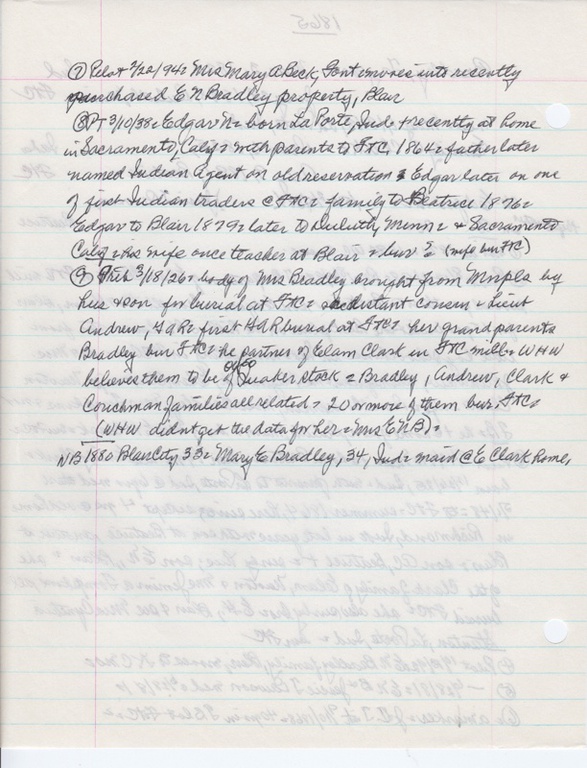 ⑦ Pilot 3/22/94 = Mrs Mary A Beck, Font = moves into recently
purchased E N Bradley property, Blair
⑧ PT 3/10/38 = Edgar N = born La Porte, Ind + recently at home
in Sacramento, Calif = with parents to FtC, 1864 = father later
named Indian Agent on old reservation = Edgar later on one
of first Indian traders @ FtC = family to Beatrice 1876 =
Edgar to Blair 1879 = later to Duluth, Minn = + Sacramento
Calif = his wife once teacher at Blair = bur ? (wife bur FtC)
⑨ 3/18/26 = body of Mrs Bradley brought from Mnpls by
hus + son for burial at FtC = distant cousin = Lieut
Andrew, GAR = first GAR burial at FtC = her grandparents
Bradley bur FtC = he partner of Elam Clark in FtC mill = WHW
believes them to be of Quaker stock = Bradley, Andrew, Clark +
Couchman families all related = 20 or more of them bur. FtC =
(WHW didn't get the data for her = Mrs E N B) =
NB 1880 Blair City 33 = Mary E Bradley, 34, Ind = maid @ E Clark home,